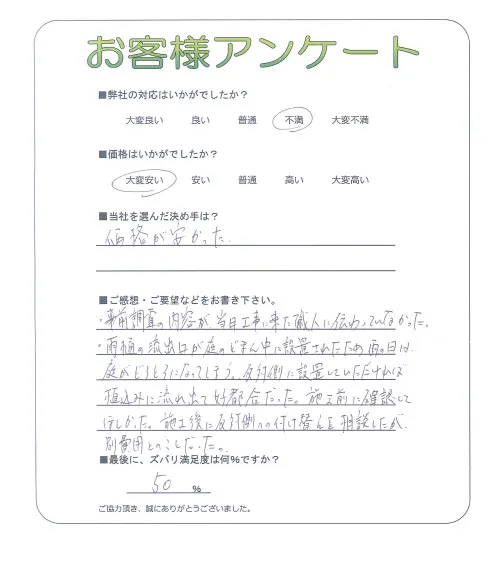 お客様アンケート
■弊社の対応はいかがでしたか？
大変良い 良い 普通 不満 大変不満
■価格はいかがでしたか？
大変安い 安い 普通 高い 大変高い
■当社を選んだ決め手は？
価格が安かった。
■ご感想・ご要望などをお書き下さい。
・事前調査の内容が、当日工事に来た職人に伝わっていなかった。
・雨樋の流出口が庭のどまん中に設置されたため雨の日は
庭がどろどろになってしまう。反対側に設置していただければ
植込みに流れ出て好都合だった。施工前に確認して
ほしかった。施工後に反対側への付け替えを相談したが、
別費用とのことだった。
■最後に、ズバリ満足度は何%ですか？
50 %
ご協力頂き、誠にありがとうございました。